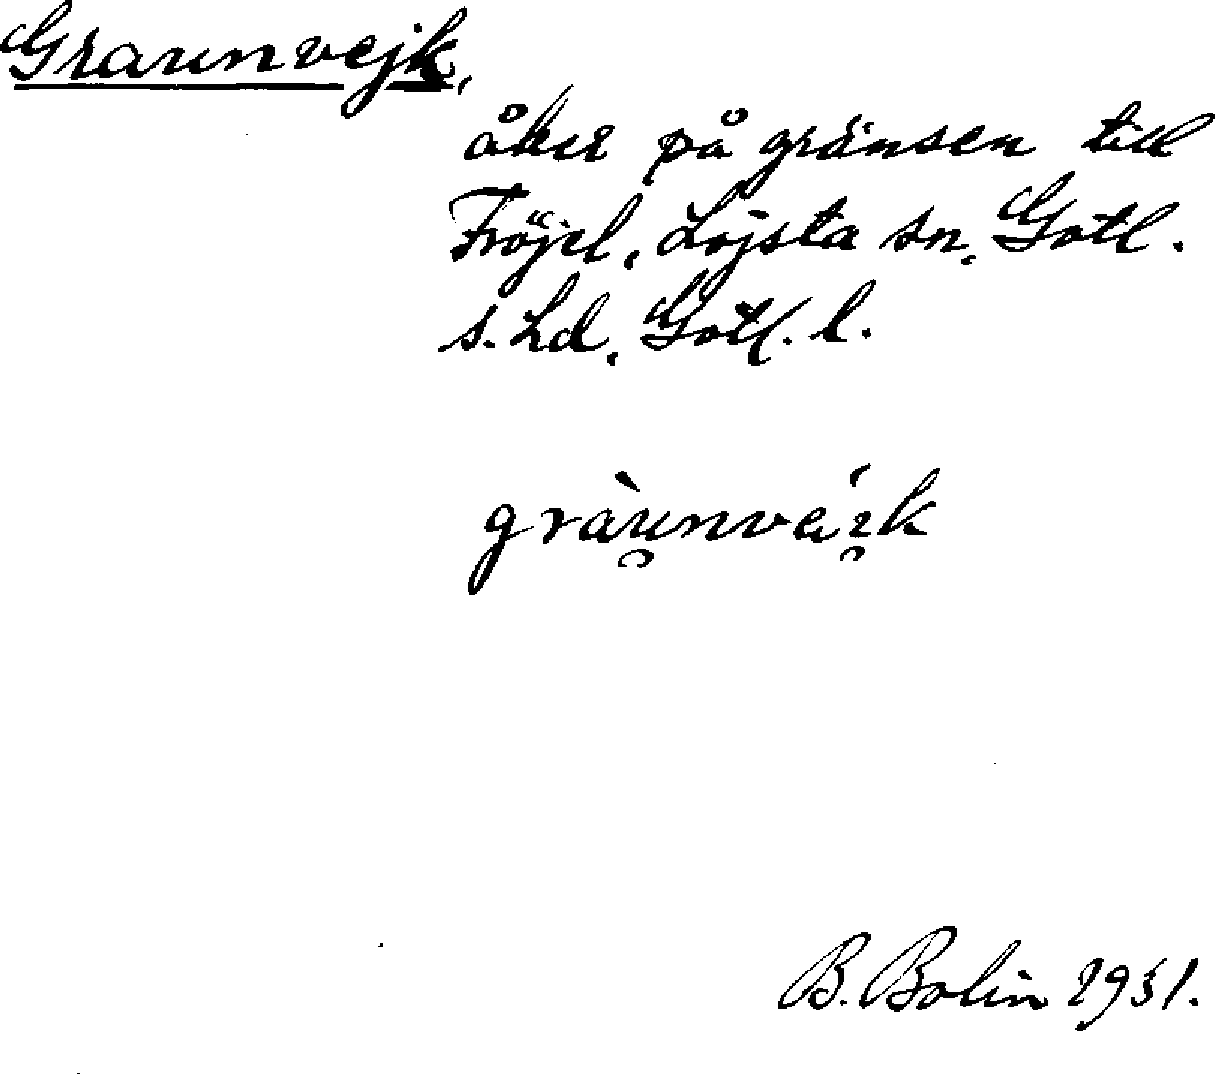 Graunvejk,
åker på gränsen till
Fröjel, Lojsta sn, Gotl.
s. hd, Gotl. l.
gràu̯nvéi̯k
B. Bolin 1931.